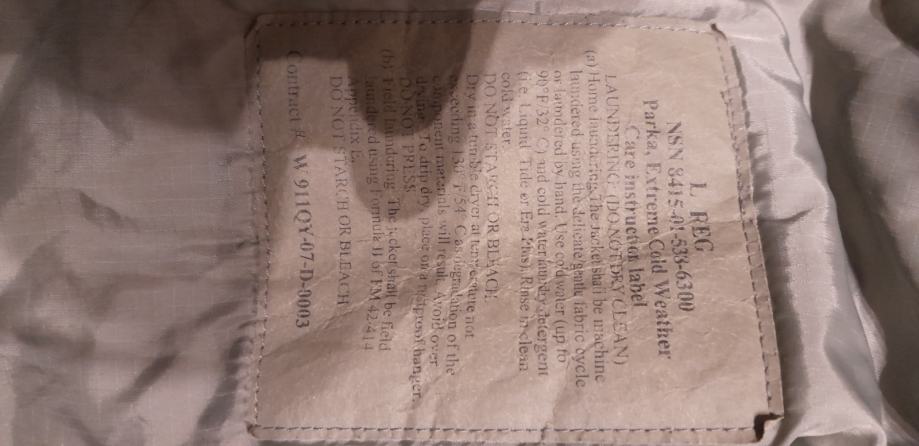 L REG
NSN 8415-01-538-6300
Parka, Extreme Cold Weather
Care instruction label
LAUNDERING: (DO NOT DRY CLEAN)
(a) Home laundering: The Jacket shall be machine
laundered using the delicate/gentle fabric cycle
or laundered by hand. Use cold water (up to
90°F/32° C) and cold water laundry detergent
(i.e. Liquid Tide or Era Plus). Rinse in clean
cold water.
DO NOT STARCH OR BLEACH.
Dry in a tumble dryer at temperature not
exceeding 130° F/54° C as degradation of the
component materials will result. Avoid over
drying. To drip dry, place on a rustproof hanger.
DO NOT PRESS.
(b) Field laundering: The jacket shall be field
laundered using Formula II of FM 42-414
Appendix E.
DO NOT STARCH OR BLEACH
Contract #. W 911QY-07-D-0003